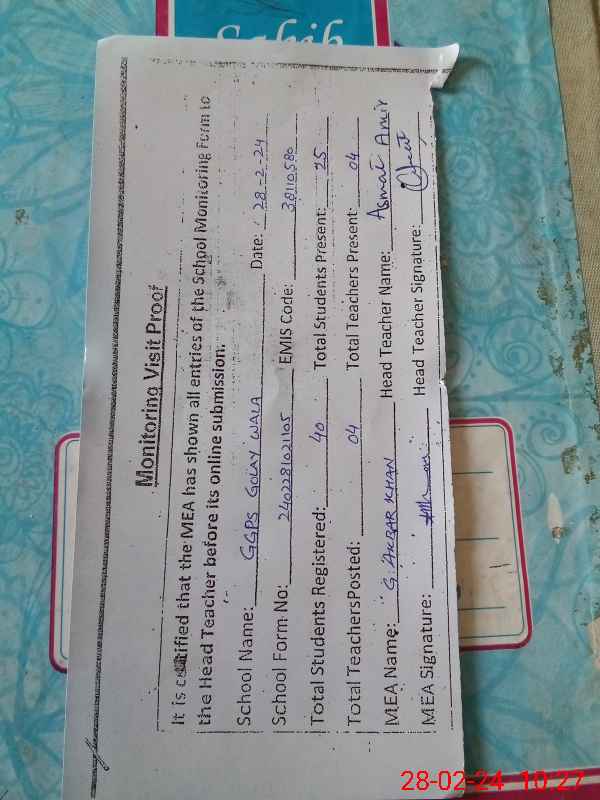 Sahib
Monitoring Visit Proof
It is certified that the MEA has shown all entries of the School Monitoring Form to
the Head Teacher before its online submission.
School Name: GGPS GOLAY WALA Date: 28-2-24
School Form No: 2402281021105 EMIS Code: 38110580
Total Students Registered: 40 Total Students Present: 25
Total Teachers Posted: 04 Total Teachers Present: 04
MEA Name: G. AKBAR KHAN Head Teacher Name: Asmat Amir
MEA Signature: Head Teacher Signature:
28-02-24 10:27